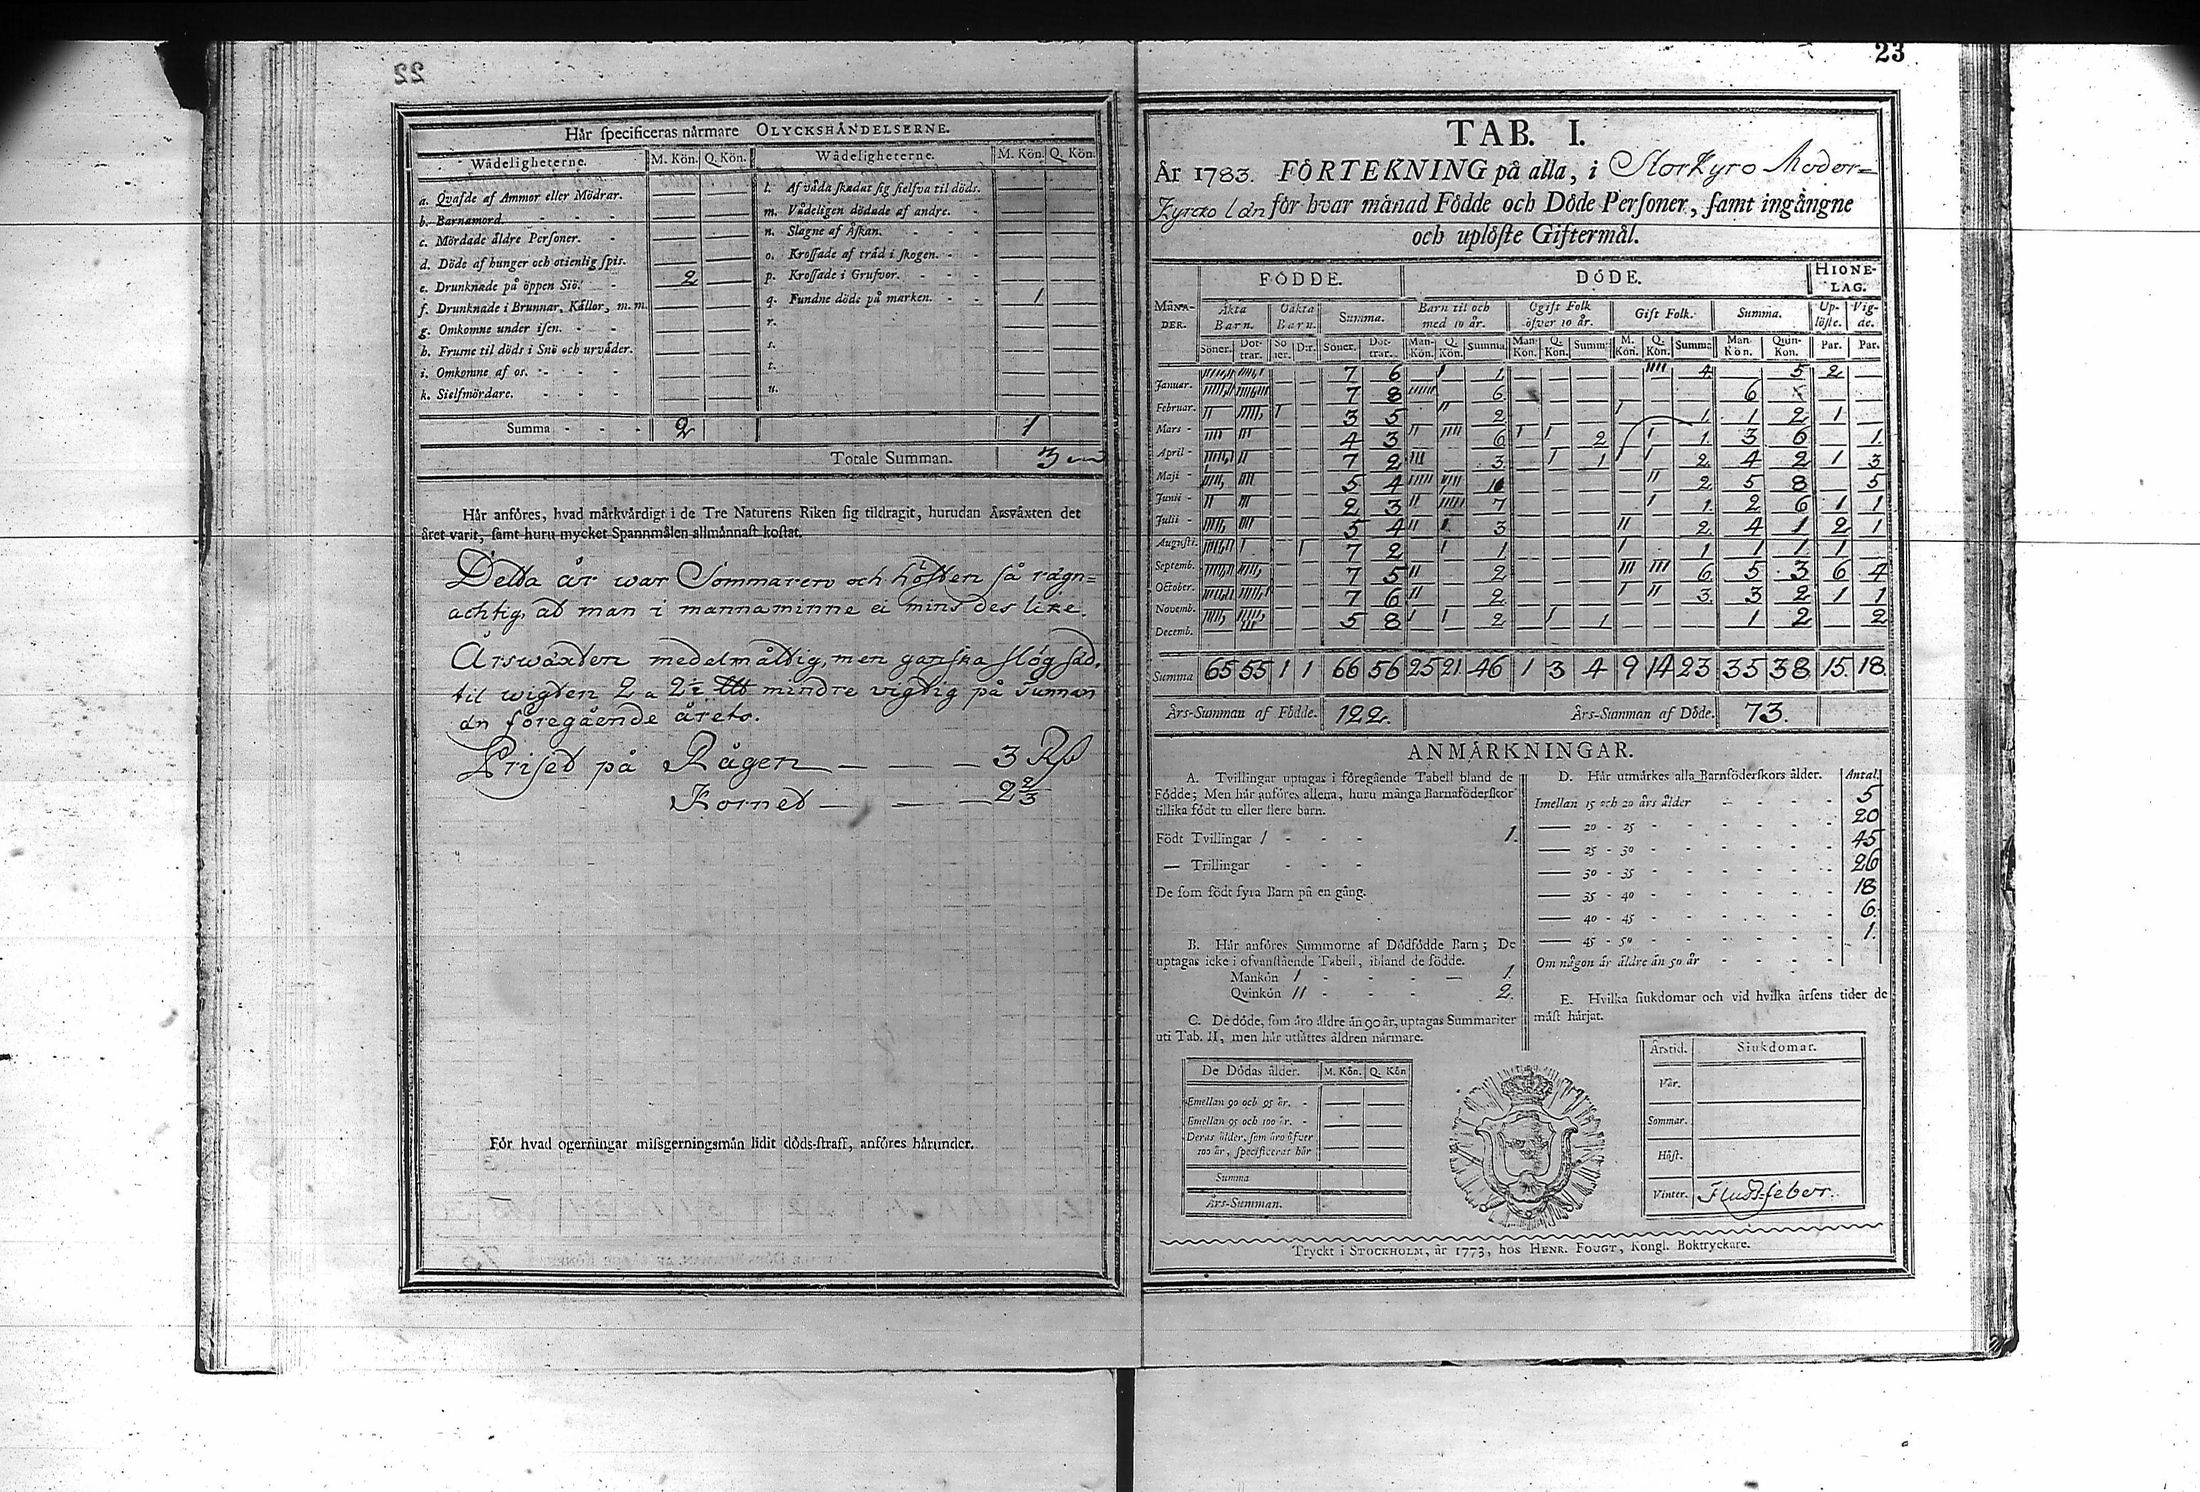 22
Här specificeras närmare OLYCKSHÄNDELSERNE.
Wådeligheterne. M. Kön. Q. Kön. Wådeligheterne. M. Kön. Q. Kön.
a. Qväfde af Ammor eller Mödrar. — — l. Af våda skadat sig sielfva til döds. — —
b. Barnamord. - - - — — m. Vådeligen dödade af andre. - — —
c. Mördade äldre Personer. - — — n. Slagne af Åskan. - - - — —
d. Döde af hunger och otienlig spis. — — o. Krossade af träd i skogen. - - — —
e. Drunknade på öppen Siö. - 2 — p. Krossade i Grufvor. - - - — —
f. Drunknade i Brunnar, Källor, m. m. — — q. Fundne döde på marken. - - 1 —
g. Omkomne under isen. - - — — r. — —
h. Frusne til döds i Snö och urväder. — — s. — —
i. Omkomne af os. - - - — — t. — —
k. Sielfmördare. - - - — — u. — —
Summa - - - 2 1
Totale Summan. 3
Här anföres, hvad märkvärdigt i de Tre Naturens Riken sig tildragit, hurudan Årsväxten det
året varit, samt huru mycket Spannmålen allmännast kostat.
Detta år war Sommaren och hösten så rägn=
achtig, at man i mannaminne ei mins des like.
Årswäxten medelmåttig, men ganska slög säd,
til wigten 2 a 2½ mindre vigtig på Tunnan
än föregående årets.
Priset på Rågen — — — 3 Rd
Kornet — — — 2 2/3
För hvad ogerningar missgerningsmän lidit döds-straff, anföres härunder.
23
TAB. I.
År 1783. FÖRTEKNING på alla, i Storkyro Moder=
Kyrcko län för hvar månad Födde och Döde Personer, samt ingångne
och uplöste Giftermål.
FÖDDE. DÖDE. HIONE-
LAG.
MÅNA-
DER. Äkta
Barn. Oäkta
Barn. Summa. Barn til och
med 10 år. Ogift Folk
öfver 10 år. Gift Folk. Summa. Up-
löste. Vig-
de.
Söner. Döt-
trar. Sö
ner. D:r. Söner. Döt-
trar. Man-
Kön. Q.
Kön. Summa Man
Kön. Q.
Kön. Summ M.
Kön. Q.
Kön. Summa Man-
Kön. Quin-
Kön. Par. Par.
Januar. 7 6 1 4 5 2 —
Februar. 7 8 6 6
Mars - 3 5 2 1 1 2 1
April - 4 3 6 2 1 3 6 1
Maji - 7 2 3 1 2 4 2 1 3
Junii - 5 4 2 5 8 5
Julii - 2 3 7 1 2 6 1 1
Augusti. 5 4 3 2 4 1 2 1
Septemb. 7 2 1 1 1 1 1 —
October. 7 5 2 6 5 3 6 4
Novemb. 7 6 2 3 3 2 1 1
Decemb. 5 8 2 1 1 2 2
Summa 65 55 1 1 66 56 25 21 46 1 3 4 9 14 23 35 38 15. 18.
Års-Summan af Födde. 122. Års-Summan af Döde. 73.
ANMÄRKNINGAR.
A. Tvillingar uptagas i föregående Tabell bland de
Födde; Men här anföres allena, huru många Barnaföderskor
tillika födt tu eller flere barn.
Födt Tvillingar / - - - 1.
— Trillingar - - -
De som födt fyra Barn på en gång.
B. Här anföres Summorne af Dödfödde Barn; De
uptagas icke i ofvanstående Tabell, ibland de födde.
Mankön / - - - — 1.
Qvinkön // - - - 2.
C. De döde, som äro äldre än 90 år, uptagas Summariter
uti Tab. II, men här utsättes åldren närmare.
De Dödas ålder. M. Kön. Q. Kön
Emellan 90 och 95 år. - — —
Emellan 95 och 100 år. - — —
Deras ålder, som äro öfver
100 år, specificerat här — —
Summa
Års-Summan.
D. Här utmärkes alla Barnföderskors ålder. Antal.
Imellan 15 och 20 års ålder - - - - 5
— 20 - 25 - - - - - - 20
— 25 - 30 - - - - - - 45
— 30 - 35 - - - - - - 26
— 35 - 40 - - - - - - 18
— 40 - 45 - - - - - - 6.
— 45 - 50 - - - - - - 1.
Om någon är äldre än 50 år - - - -
E. Hvilka siukdomar och vid hvilka årsens tider de
mäst härjat.
Årstid. Siukdomar.
Vår.
Sommar.
Höst.
Vinter. Fluss-feber.
Tryckt i STOCKHOLM, år 1773, hos HENR. FOUGT, Kongl. Boktryckare.